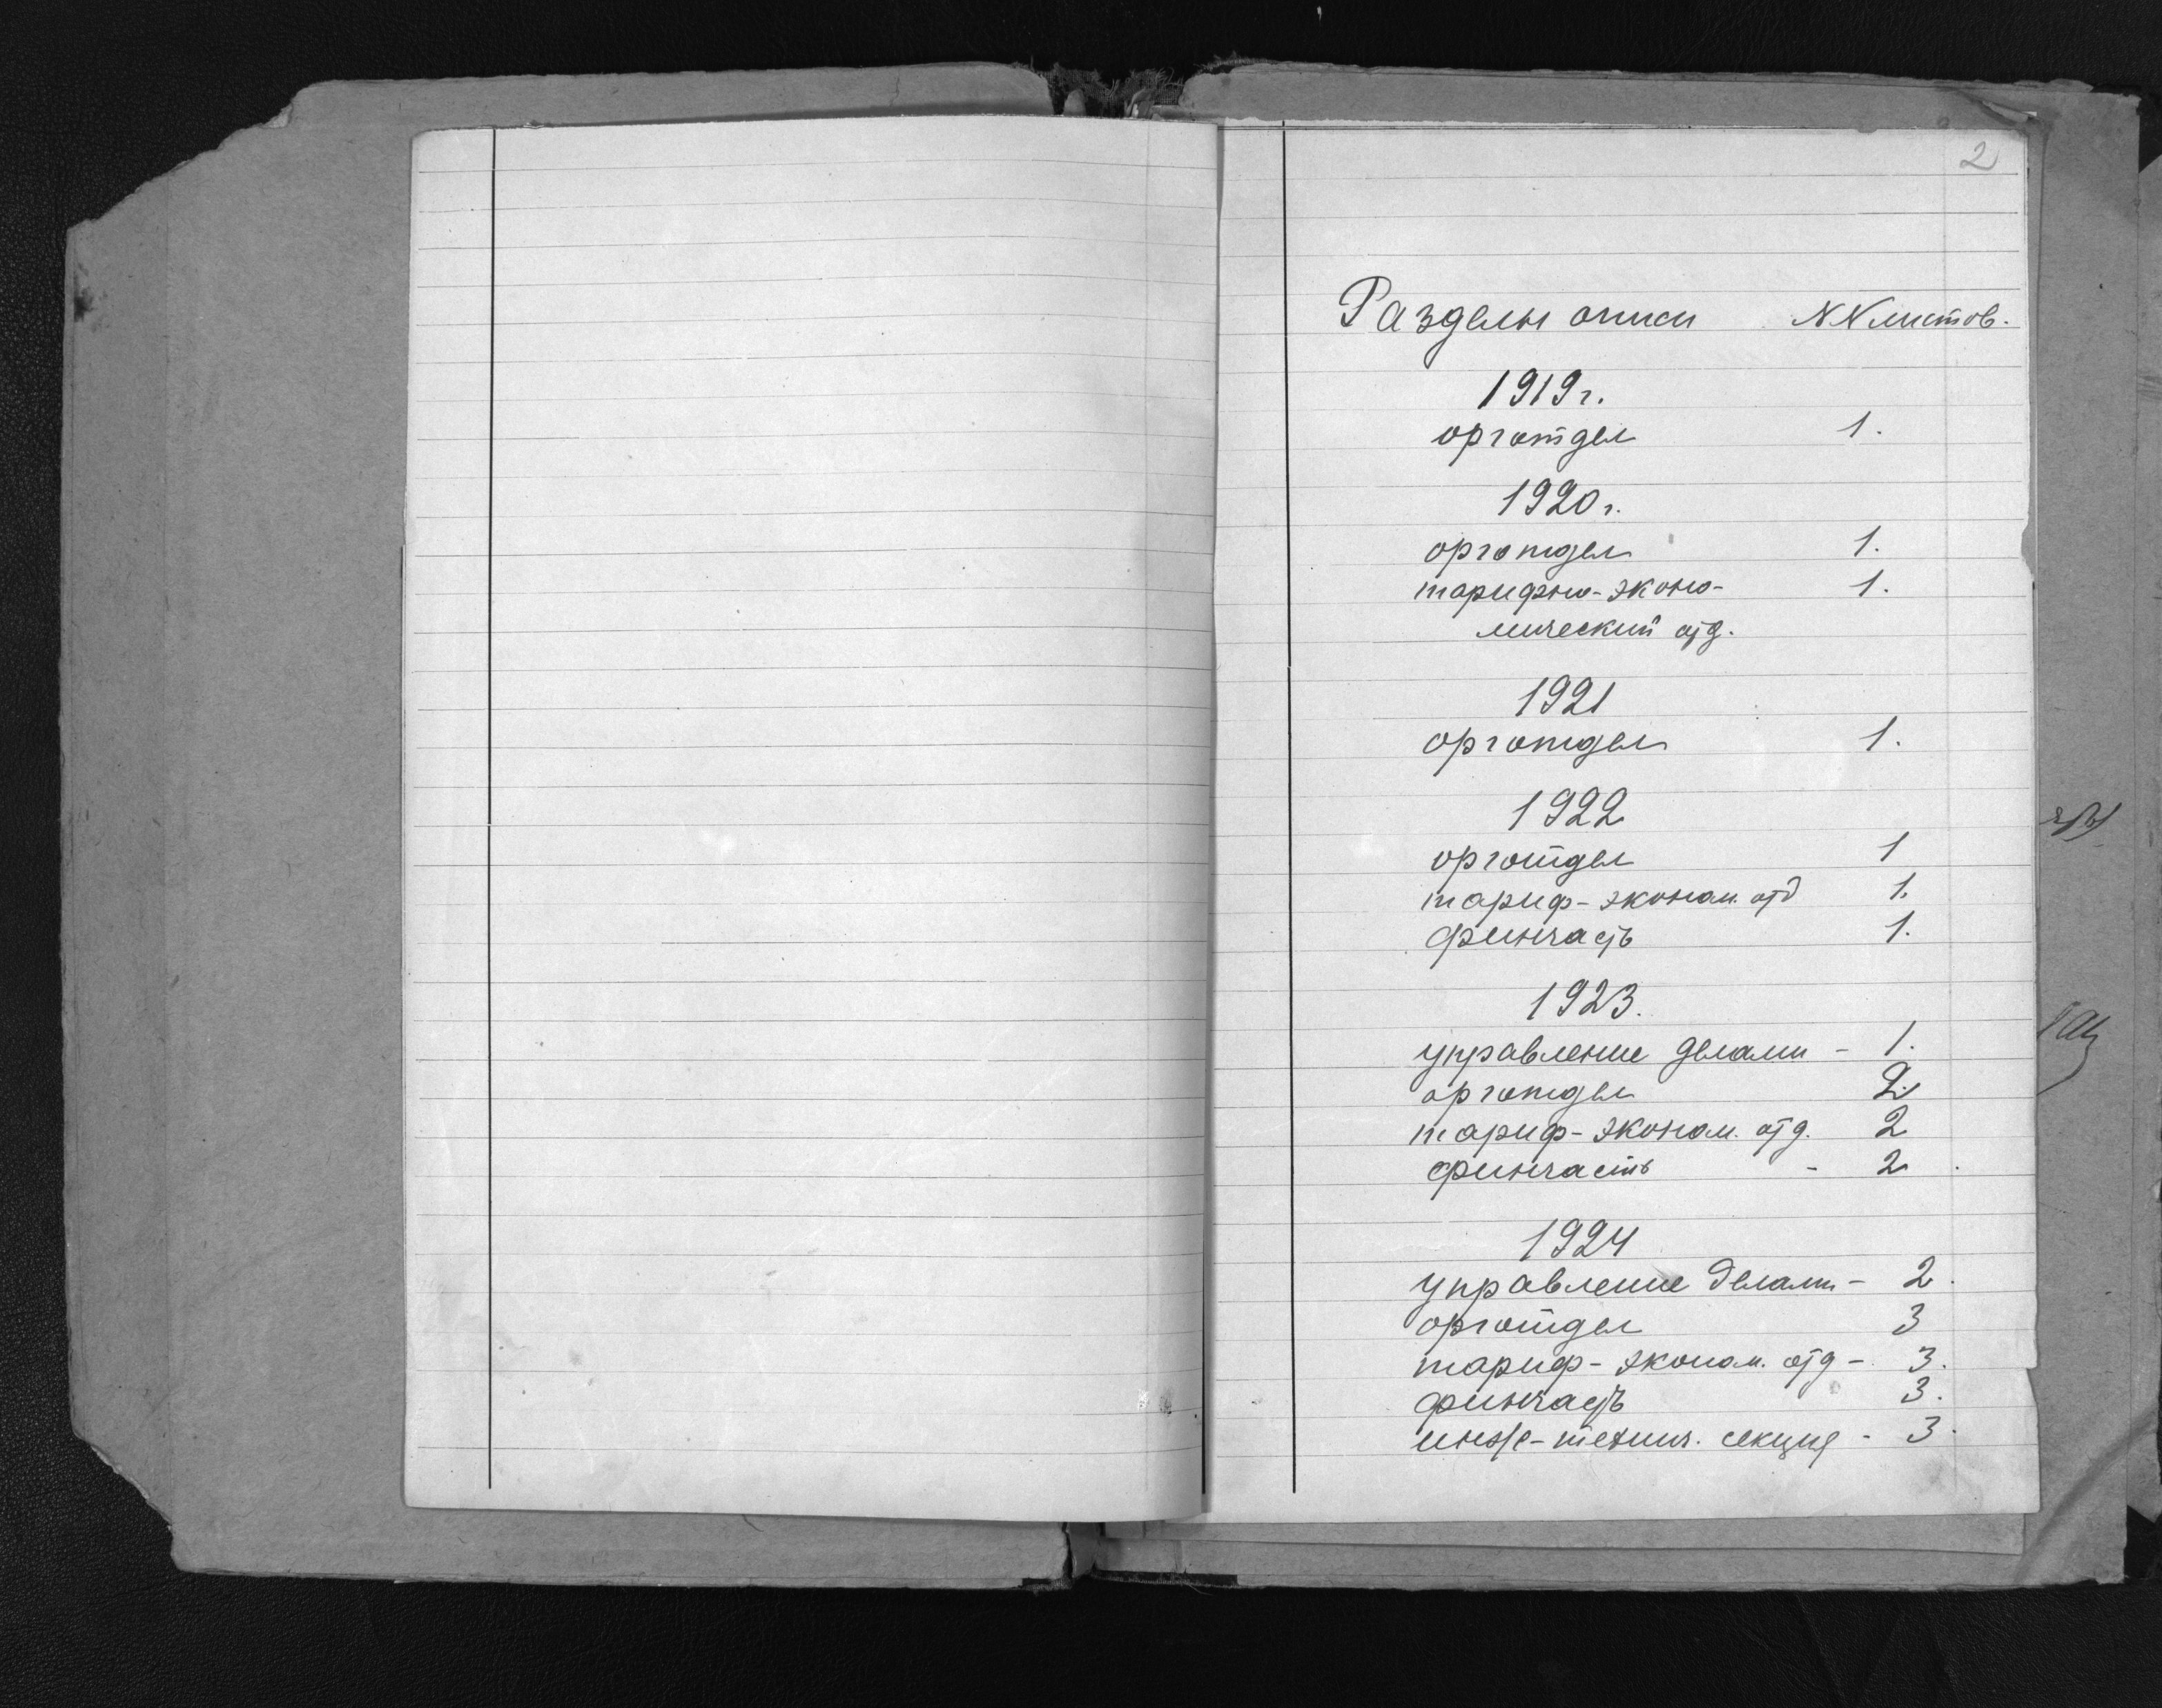 2
Разделы описи NN листов.
1919 г.
орготдел 1.
1920 г.
орготдел 1.
тарифно-эконо- 1.
мический отд.
1921
орготдел 1.
1922
орготдел 1
тариф-эконом. отд 1.
финчасть 1.
1923.
управление делами - 1.
орготдел 2
тариф-эконом. отд. 2
финчасть - 2
1924
управление делами - 2.
орготдел 3
тариф-эконом. отд - 3.
финчасть 3.
инж-технич. секция - 3.